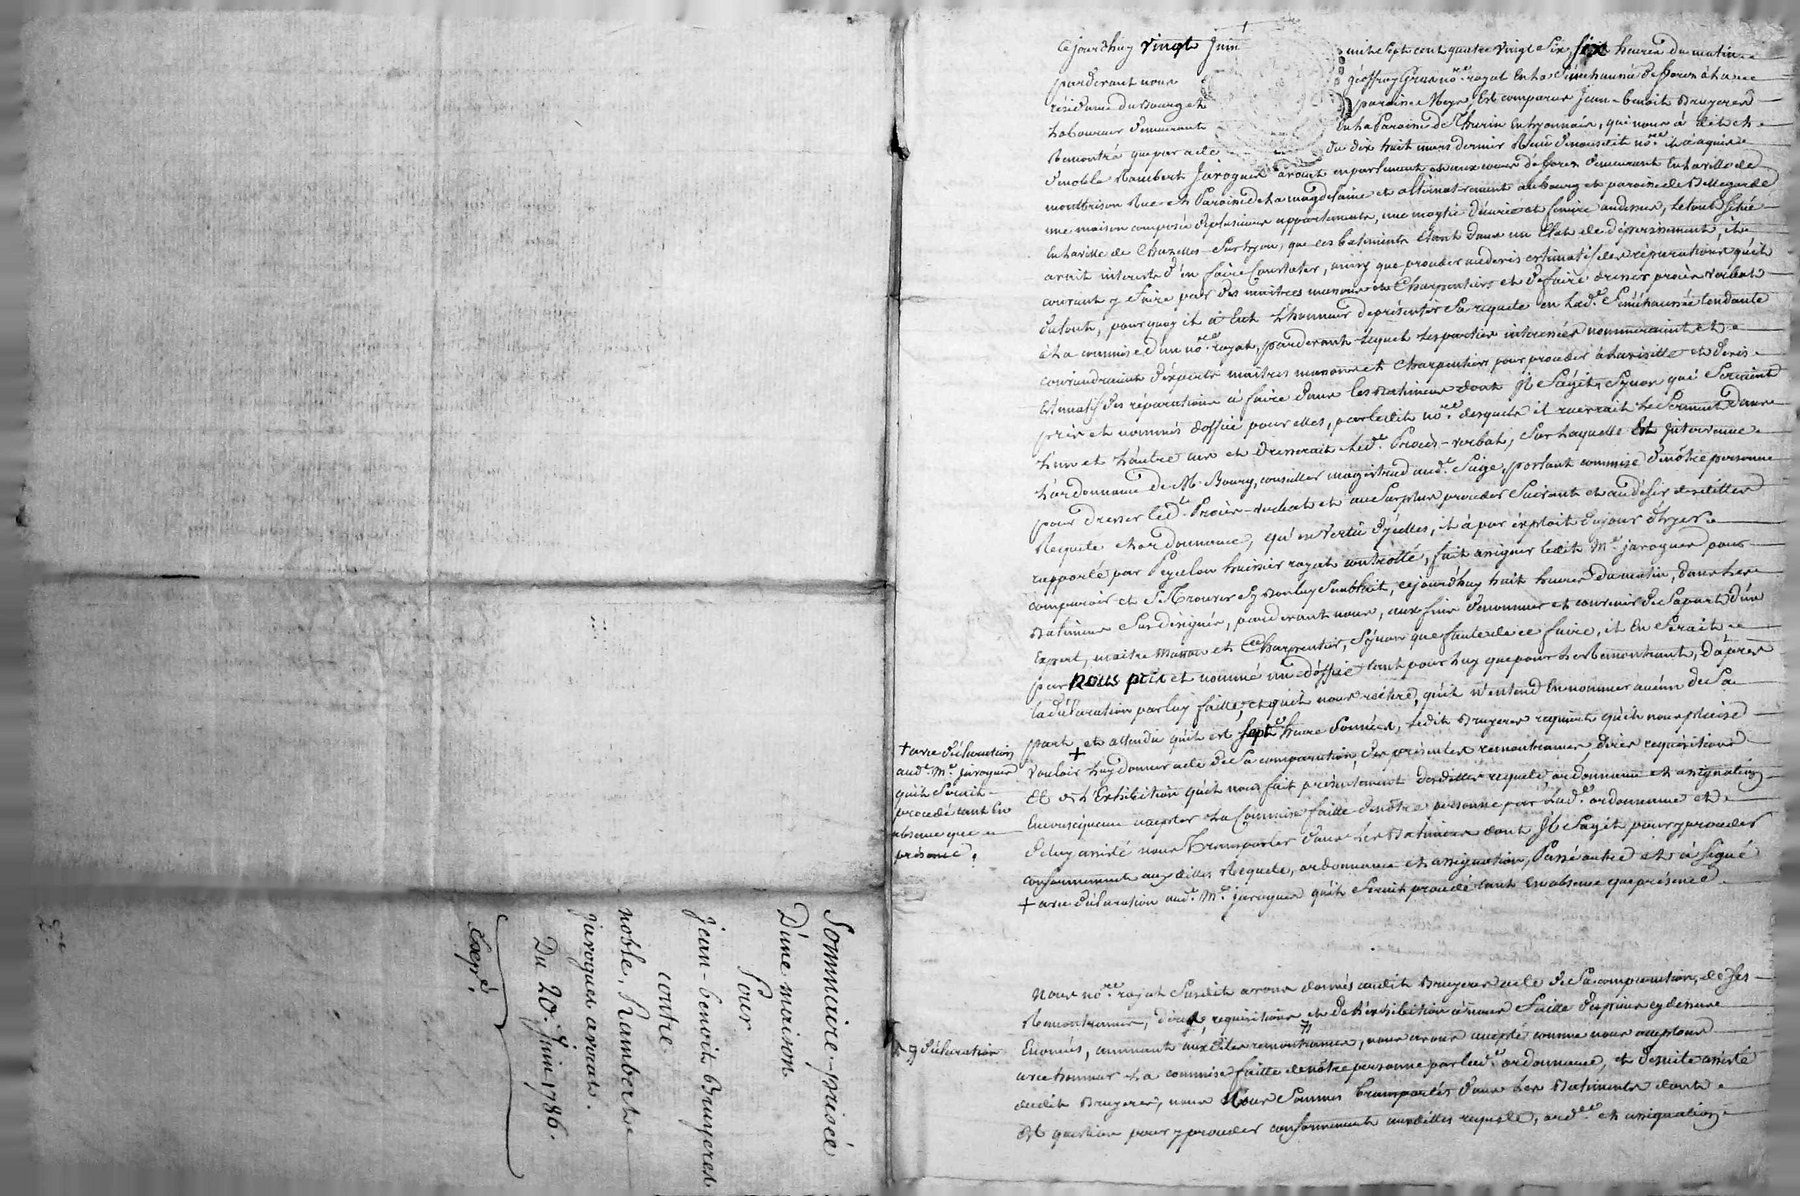 Sommaire-prisée
D'une maison
Pour
jean-benoit Bruyeres
contre
noble, Rambert
jaroques avocat.
Du 20. Juin 1786.
Cejourdhuy vingt Juin mil sept cent quatre vingt six, sept heures du matin
pardevant nous geoffroy notre royal en la Sénéchaussée de forez à la
résidence du Bourg et paroisse Est comparu Jean-benoit Bruyeres
Laboureur demeurant en la Paroisse de Thurin en Lyonnois, qui nous à dit et
Remontré que par acte du dix huit mars dernier Reçu de nousdit nore il a aquis
de noble Rambert Jaroques avocat en parlement et aux cours de forez demeurant en la ville de
montbrison Rue et Paroisse de la magdelaine et alternativement au bourg et paroisse de Bellegarde
une maison composée de plusieurs appartements, une moytié d'écurie et feniere au dessus, le tout situé
en la ville de Chazelles sur Lyon, que ces batiments étant dans un Etat de dépérissement, il
avoit interets d'en faire constater, ainsy que proceder au devis estimatif des réparations qu'il
convient y faire par des maitres massons et Charpentiers et de faire dresser procès verbal
du tout, pourquoy il a eut L'honneur de présenter sa requete en lade Sénéchaussée tendante
à la commise d'un nore royal, pardevant lequel les parties interessées nommeraient et
conviendraient d'experts maitres massons et Charpentiers pour proceder à la visitte et devis
Estimatif des réparations a faire dans les Batiments dont il s'agit, Sinon qui Seraient
pris et nommés d'office pour elles, par ledit nore desquels il recevrait le Serment dans
L'un et L'autre cas et Dresserait led. Procès-verbal, Sur laquelle Est Intervenue
L'ordonnance de M. Boury, conseiller magistrat aud. Siege, portant commise de nôtre personne
pour dresser led. Procès-verbal et au Surplus proceder Suivant et au désir desdittes
Requete et ordonnance, qu'en vertu d'ycelles, il à par exploit du jour d'hyer
rapporté par Peyrelon huissier royal controllé, fait assigner ledit Me jaroques pour
comparoir et se trouver sy bon luy semblait, cejourd'huy huit heures du matin, dans les
Batiments Susdesignés, pardevant nous, aux fins de nommer et convenir de Sa part d'un
Expert, maitre Masson et Charpentier, Sinon que faute de ce faire, il en Serait
par nous pris et nommé un d'office tant pour luy que pour le Remontrant, d'après
la déclaration par luy faitte, et qu'il nous réitere, qu'il n'entend en nommer aucun de Sa
part, et attendu qu'il est sept heure Sonnée, ledit Bruyeres requiert qu'il nous plaise
vouloir luy donner acte de Sa comparution, des présentes remontrances, dires requisitions
Et de L'exhibition qu'il nous fait présentement desdittes requete, ordonnance et assignation
En consequence accepter La Commise faitte de nôtre personne par lade ordonnance et
de luy assisté nous Transporter dans les Batiments dont il s'agit pour y proceder
conformement auxdittes Requete, ordonnance et assignation, Passé outre et à signé
+ avec déclaration aud. Me jaroques qu'il Serait procedé tant En absence que présence
+ avec déclaration
aud. Me jaroques
qu'il Serait
procedé tant En
absence que
présence.
Nous nore royal Susdit avons donnés audit Bruyeres acte de Sa comparution, de Ses
Remontrances, dires, requisitions et de L'exhibition à nous faitte des pieces cy dessus
Enoncés, ammant auxdites remontrances, nous avons accepté comme nous acceptons
avec honneur La commise faitte de nôtre personne par lad. ordonnance, et De suite assisté
dudit Bruyeres, nous Nous Sommes transportés dans les Batiments dont
Est question pour y proceder conformement auxdittes requete, ordce et assignation
déclaration